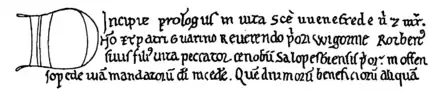 Incipit prologus in uita scē wenefrede ū. ⁊ mr̄.
Dño et patri Guarino Reuerendo p̄ori wigornie Robert'
suus fili' uita peccator cenobii Salopesbiensis p̄or in offen
so pede uiā mandatorū dī incedē. Que dā moris beneficiorū aliquā